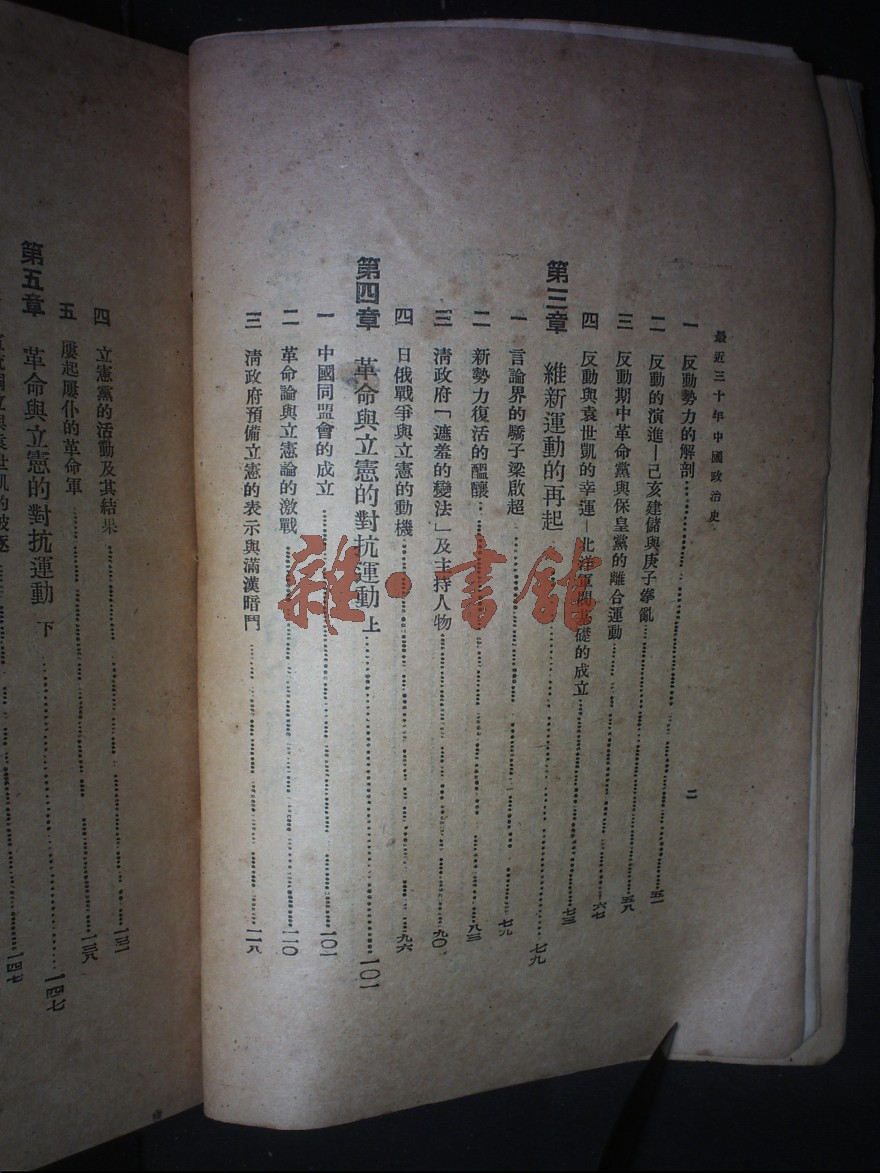 最近三十年中國政治史
二
一 反動勢力的解剖 五一
二 反動的演進—己亥建儲與庚子拳亂 五八
三 反動期中革命黨與保皇黨的離合運動 六七
四 反動與袁世凱的幸運—北洋軍閥基礎的成立 七三
第三章 維新運動的再起 七九
一 言論界的驕子梁啟超 七九
二 新勢力復活的醞釀 八三
三 清政府「遮羞的變法」及主持人物 九〇
四 日俄戰爭與立憲的動機 九六
第四章 革命與立憲的對抗運動 上 一〇一
一 中國同盟會的成立 一〇一
二 革命論與立憲論的激戰 一一〇
三 清政府預備立憲的表示與滿漢暗鬥 一一八
四 立憲黨的活動及其結果 一三一
五 屢起屢仆的革命軍 一三八
第五章 革命與立憲的對抗運動 下 一四七
一四七
雜·書館